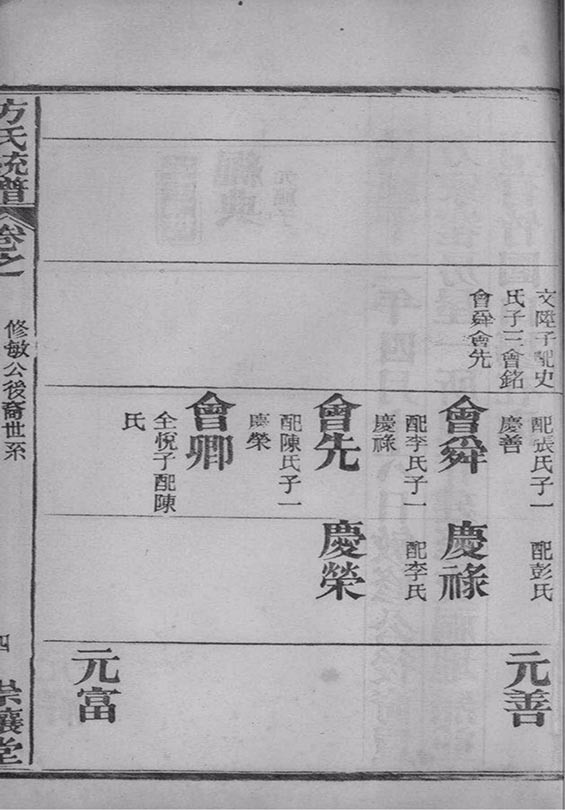 文陞子配史
氏子三會銘
會舜會先
配張氏子一
慶善
會舜
配李氏子一
慶祿
會先
配陳氏子一
慶榮
會卿
全悅子配陳
氏
配彭氏
慶祿
配李氏
慶榮
元善
元富
方氏統譜
卷之
修敏公後裔世系
四
崇讓堂